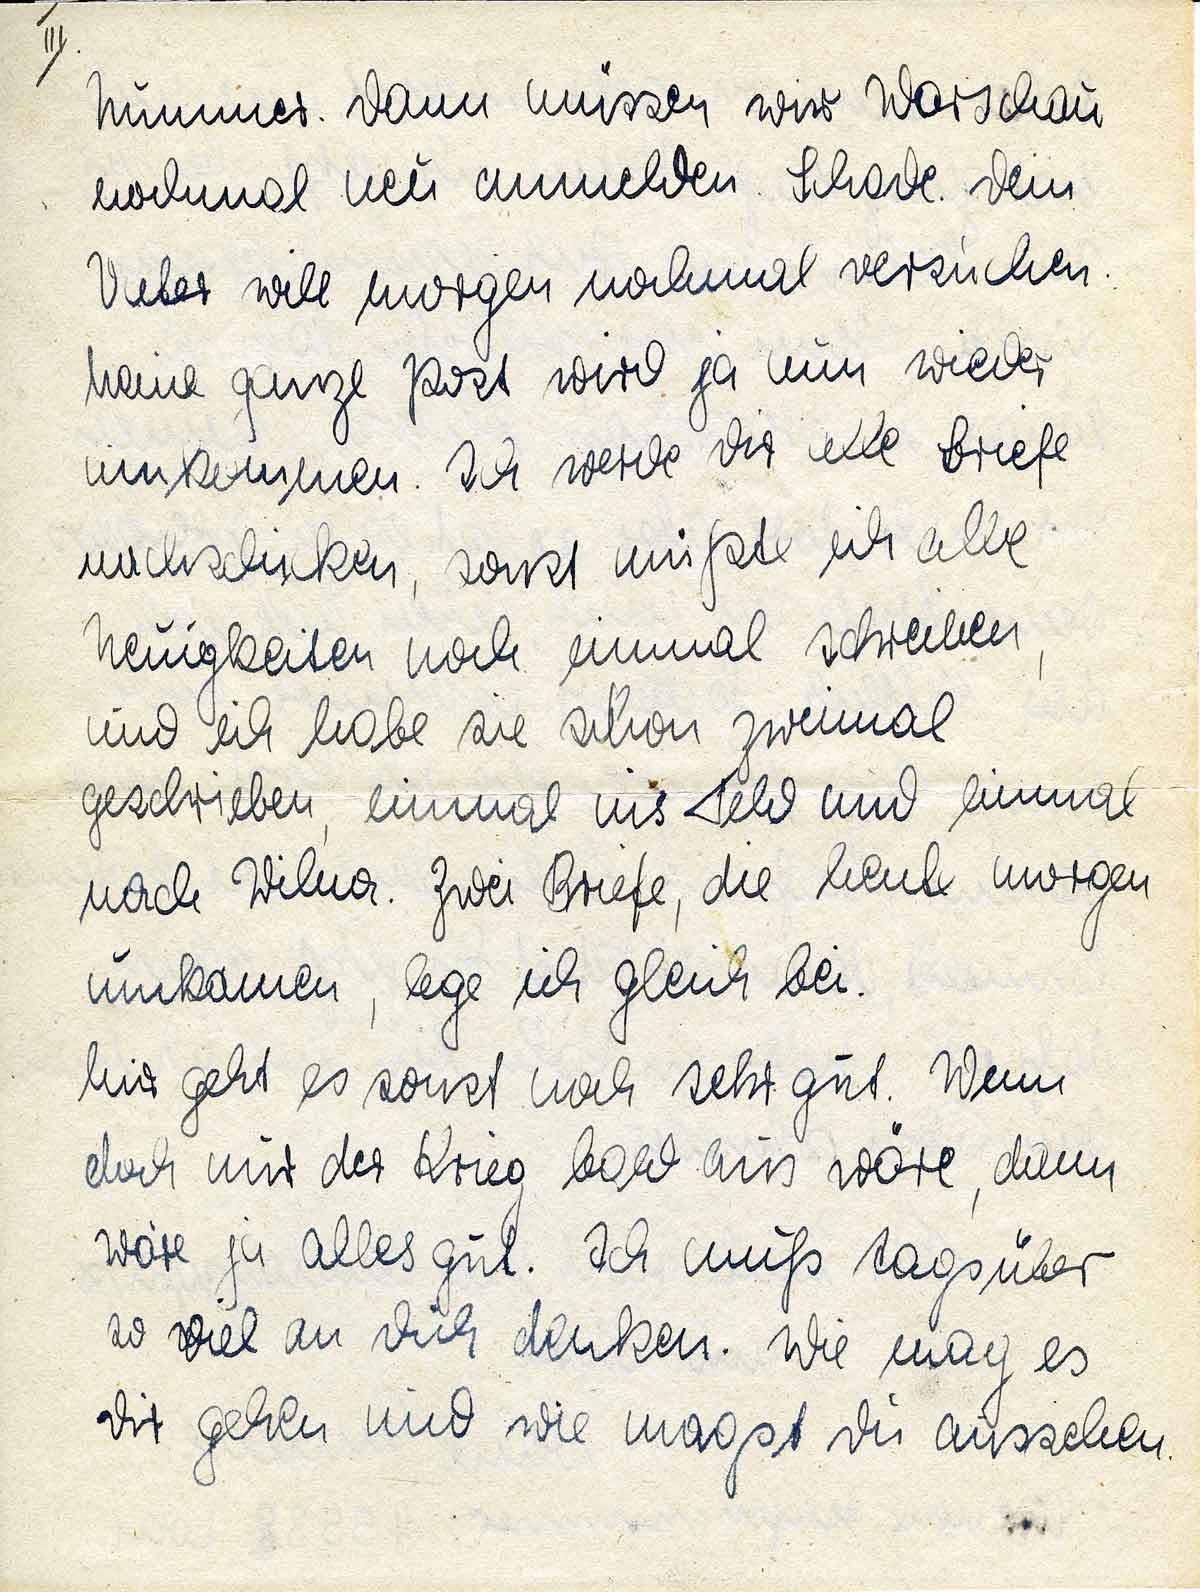 III.
Nummer. Dann müssen wir Warschau
nochmal neu anmelden. Schade. Dein
Vater will morgen nochmal versuchen.
Meine ganze Post wird ja nun wieder
umkommen. Ich werde dir alle Briefe
nachschicken, sonst müßte ich alle
Neuigkeiten noch einmal schreiben,
und ich habe sie schon zweimal
geschrieben, einmal ins Feld und einmal
nach Wilna. Zwei Briefe, die heute morgen
umkamen, lege ich gleich bei.
Mir geht es sonst noch sehr gut. Wenn
doch nur der Krieg bald aus wäre, dann
wäre ja alles gut. Ich muß tagsüber
so viel an dich denken. Wie mag es
dir gehen und wie magst du aussehen.